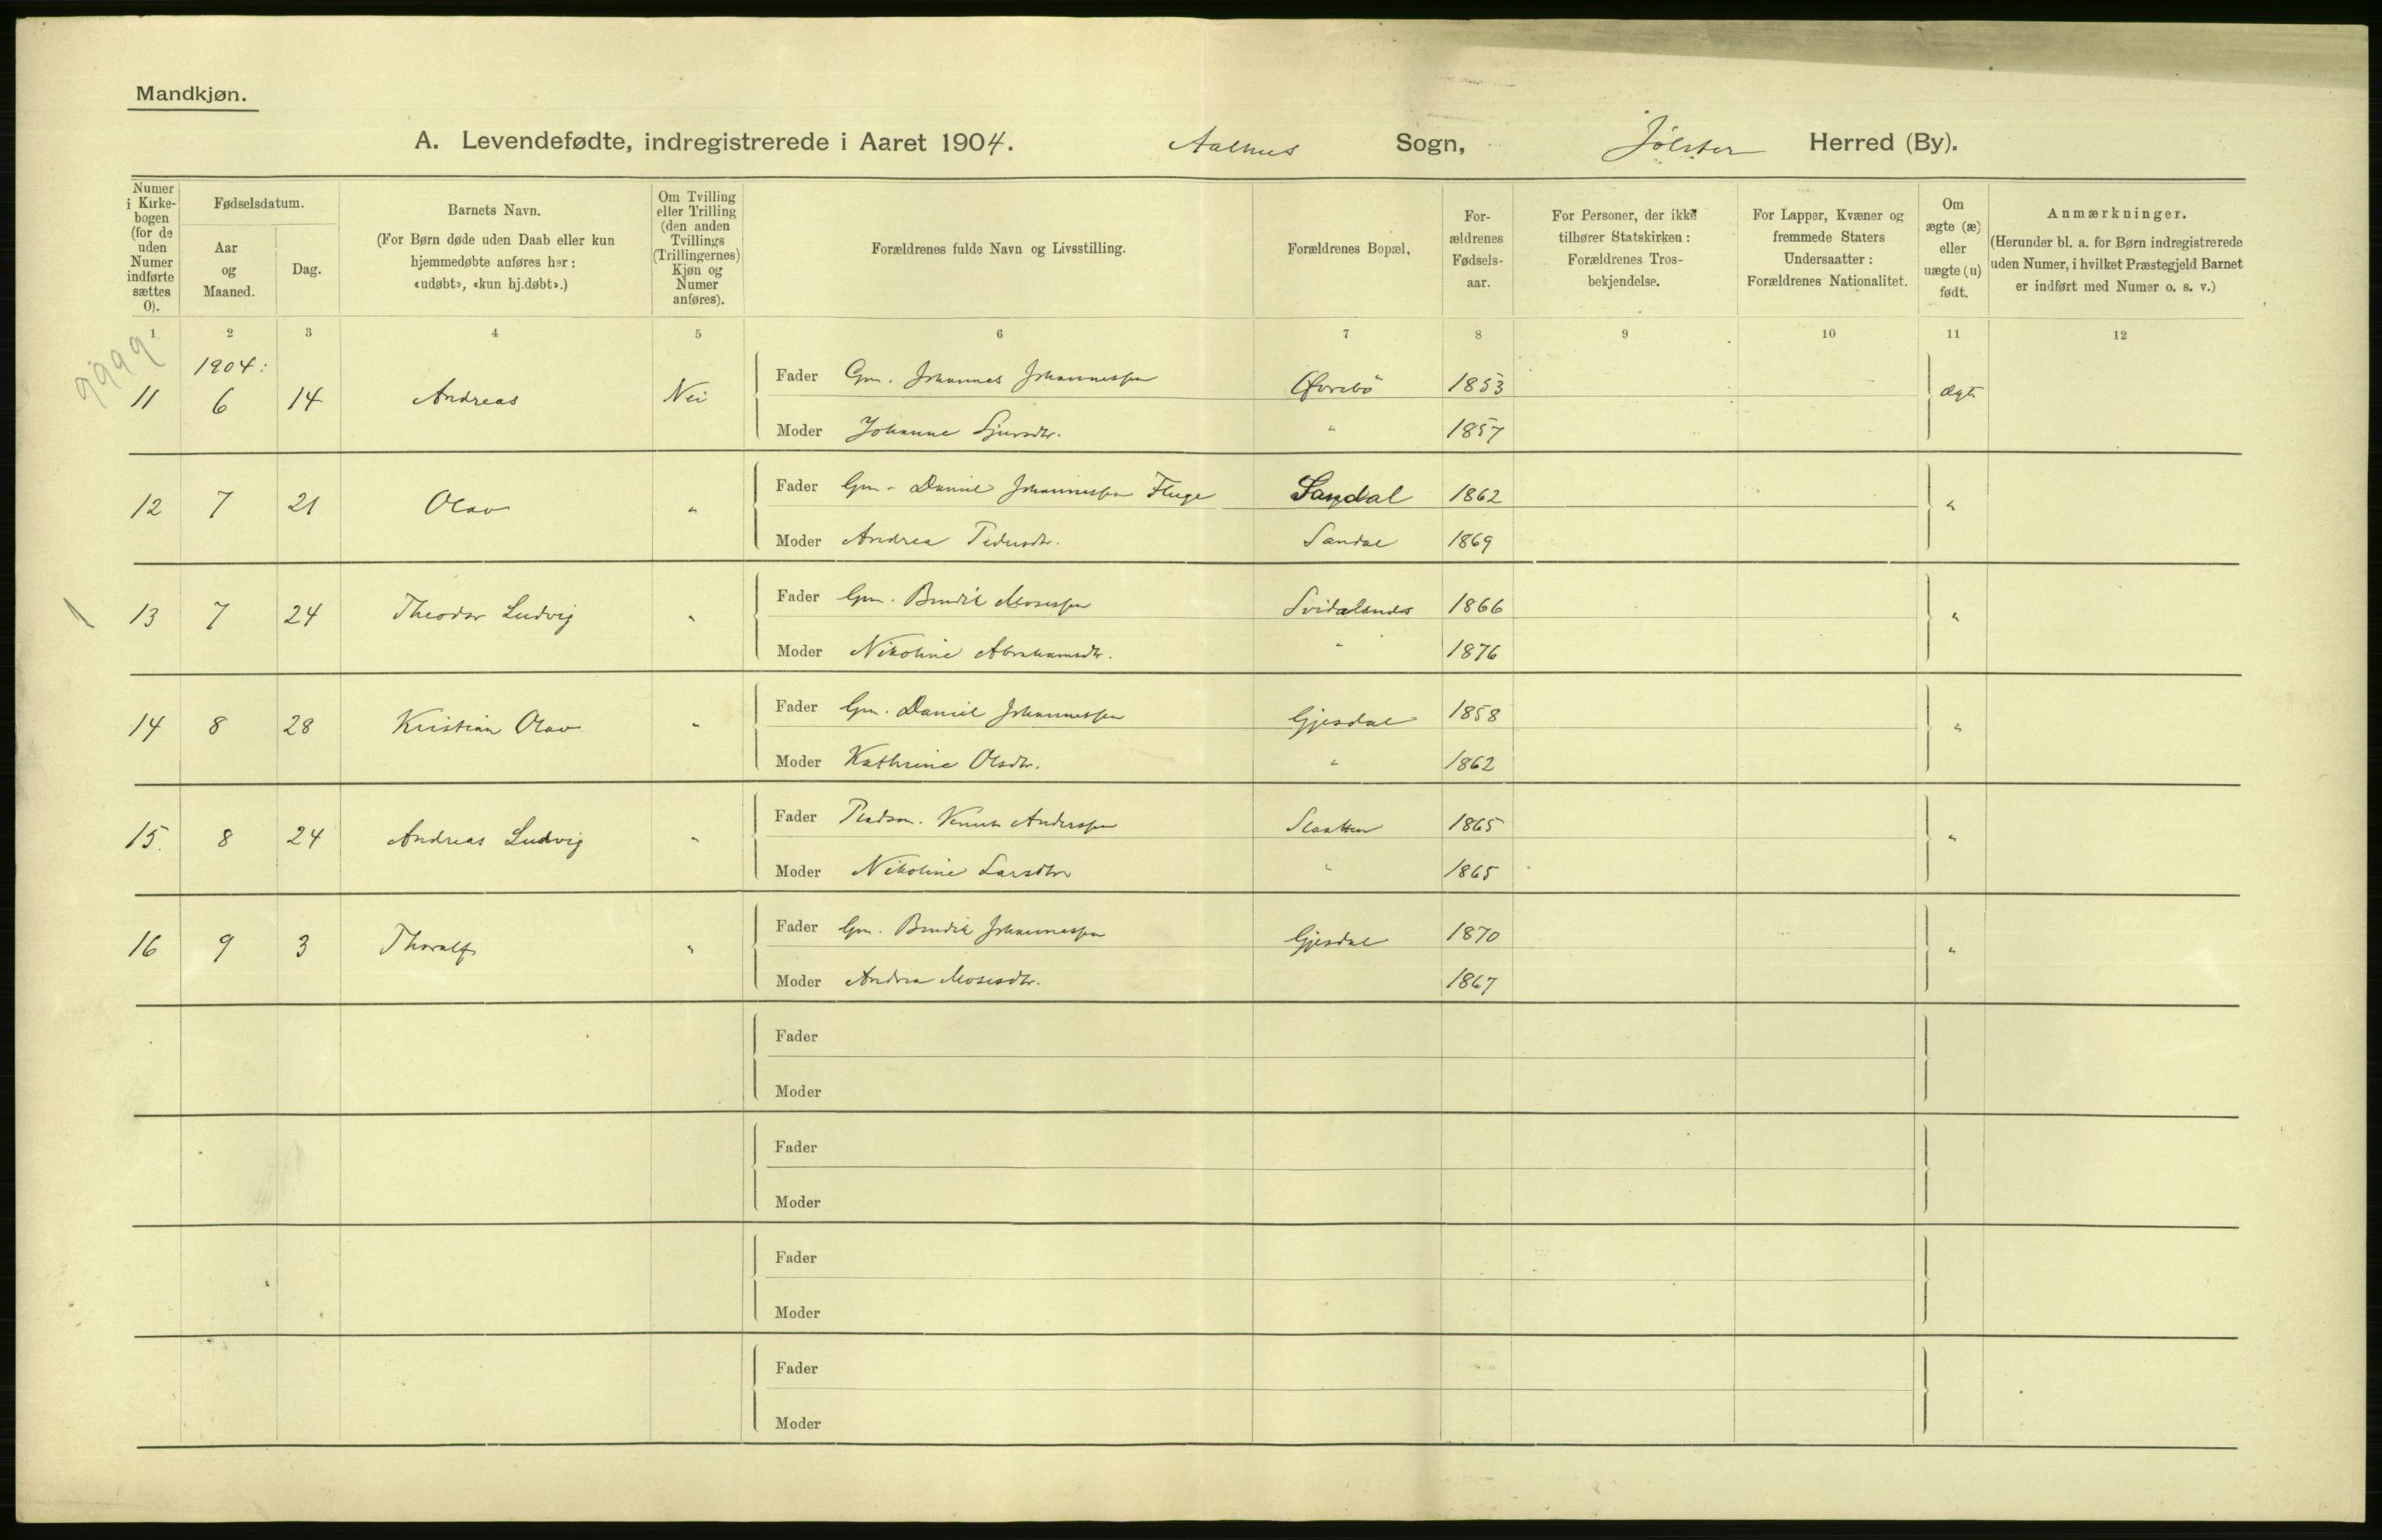 Mandkjøn.
A. Levendefødte, indregistrerede i Aaret 1904. Aalhus Sogn, Jølster Herred (By).
Numer i Kirke-bogen (for de uden Numer indførte sættes 0).
Fødselsdatum.
Aar og Maaned.
Dag.
Barnets Navn.
(For Børn døde uden Daab eller kun hjemmedøbte anføres her: «udøbt», «kun hj.døbt».)
Om Tvilling eller Trilling (den anden Tvillings (Trillingernes) Kjøn og Numer anføres).
Forældrenes fulde Navn og Livsstilling.
Forældrenes Bopæl,
For-ældrenes Fødsels-aar.
For Personer, der ikke tilhører Statskirken: Forældrenes Tros-bekjendelse.
For Lapper, Kvæner og fremmede Staters Undersaatter: Forældrenes Nationalitet.
Om ægte (æ) eller uægte (u) født.
Anmærkninger.
(Herunder bl. a. for Børn indregistrerede uden Numer, i hvilket Præstegjeld Barnet er indført med Numer o. s. v.)
1 2 3 4 5 6 7 8 9 10 11 12
9999
1904:
11 6 14 Andreas Nei Fader Gm. Johannes Johannessen Øvrebö 1853 ægte
Moder Johanne Sjursdtr. " 1857
12 7 21 Olav " Fader Gm. Daniel Johannessen Fluge Sandal 1862 "
Moder Andrea Pedersdtr. Sandal 1869
1
13 7 24 Theodor Ludvig " Fader Gm. Bendik Mosessen Svidalsnes 1866 "
Moder Nikoline Abrahamsdtr. " 1876
14 8 28 Kristian Olav " Fader Gm. Daniel Johannessen Gjesdal 1858 "
Moder Kathrine Olsdtr. " 1862
15. 8 24 Andreas Ludvig " Fader Pladsm. Knut Anderssen Slaatten 1865 "
Moder Nikoline Larsdtr " 1865
16 9 3 Thoralf " Fader Gm. Bendik Johannessen Gjesdal 1870 "
Moder Andrea Mosesdtr. 1867
Fader
Moder
Fader
Moder
Fader
Moder
Fader
Moder